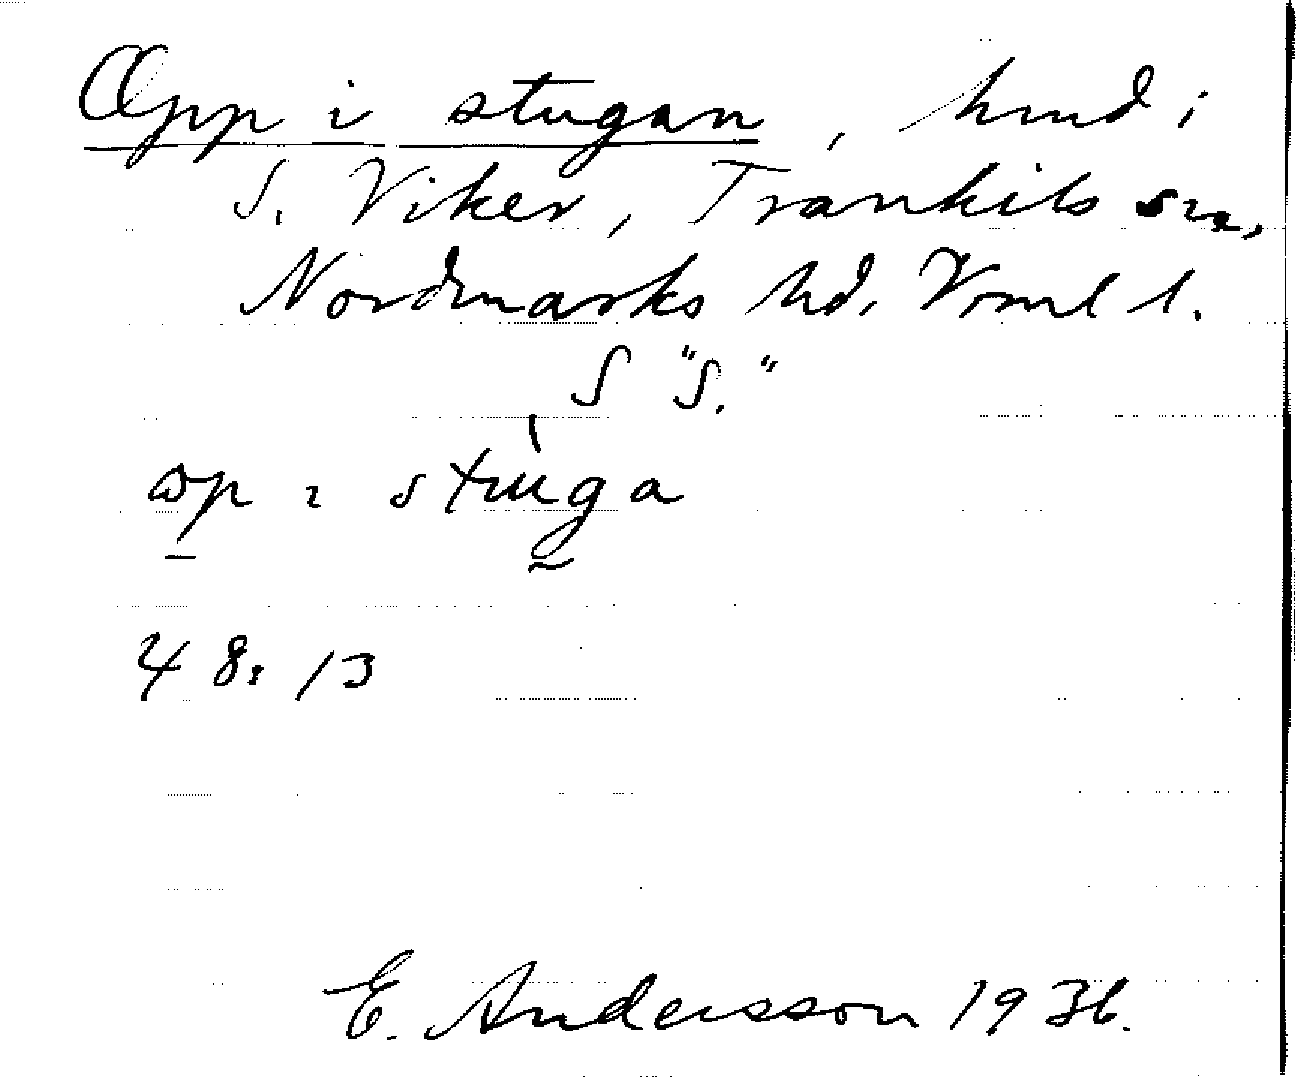 Opp i stugan, hmd i
S. Viker, Trankils sn,
Nordmarks hd, Vrml l.
S "S."
48: 13
E. Andersson 1936.